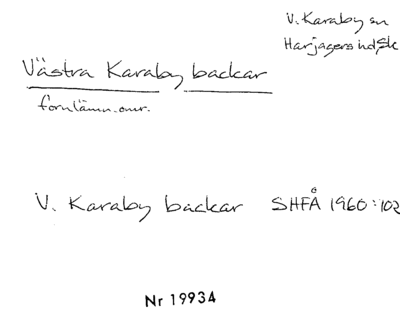 V. Karaby sn
Harjagers hd, Sk
Västra Karaby backar
fornlämn. omr.
V. Karaby backar SHFÅ 1960:102
Nr 19934